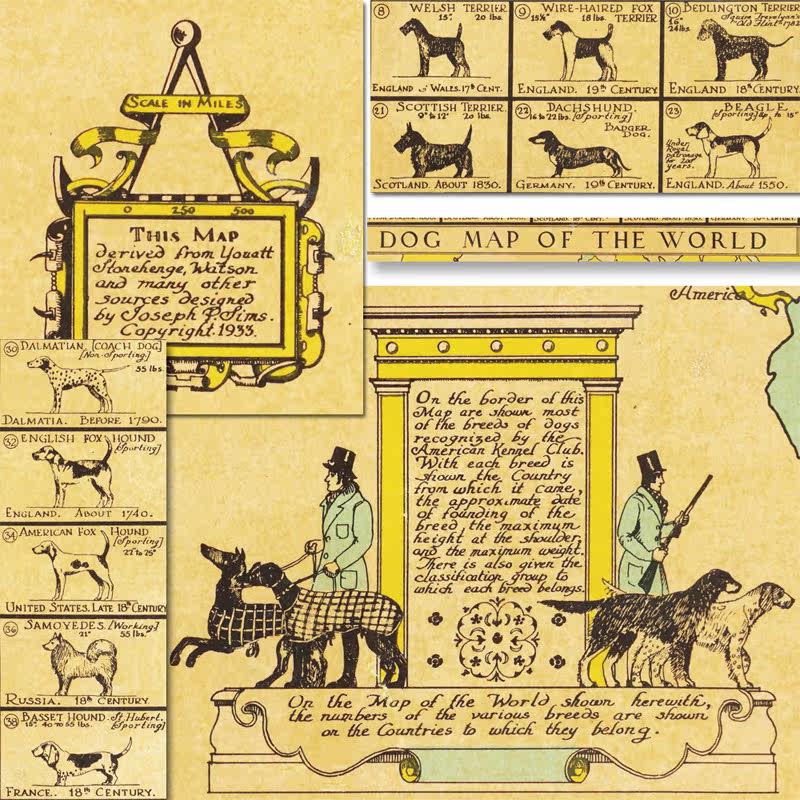 SCALE IN MILES
0 250 500
THIS MAP
derived from Youatt
Stonehenge, Watson
and many other
sources designed
by Joseph P. Sims.
Copyright 1933.
8 WELSH TERRIER
15". 20 lbs.
ENGLAND & WALES. 17th CENT.
9 WIRE-HAIRED FOX
15½" 18 lbs. TERRIER
ENGLAND. 19th CENTURY
10 BEDLINGTON TERRIER
16" Squire Trevelyan's
24 lbs. "Old Flint" 1782
ENGLAND 18th CENTURY.
21 SCOTTISH TERRIER.
9" to 12" 20 lbs.
SCOTLAND. ABOUT 1830.
22 DACHSHUND.
16 to 22 lbs. [Sporting]
BADGER
DOG.
GERMANY. 19th CENTURY.
23 BEAGLE.
[Sporting] to 15"
Under
Royal
patronage
for 200
years.
ENGLAND. About 1550.
DOG MAP OF THE WORLD
America
30 DALMATIAN. [COACH DOG]
[Non-Sporting.]
55 lbs.
DALMATIA. BEFORE 1790.
32 ENGLISH FOX HOUND
[Sporting]
ENGLAND. ABOUT 1740.
34 AMERICAN FOX HOUND
[Sporting]
22" to 25"
UNITED STATES. LATE 18th CENTURY
36 SAMOYEDES. [Working]
21" 55 lbs.
RUSSIA. 18th CENTURY.
38 BASSET HOUND. St. Hubert.
15". 40 to 55 lbs. [Sporting]
FRANCE. 18th CENTURY.
On the border of this
Map are shown most
of the breeds of dogs
recognized by the
American Kennel Club.
With each breed is
shown the Country
from which it came,
the approximate date
of founding of the
breed, the maximum
height at the shoulder,
and the maximum weight.
There is also given the
classification group to
which each breed belongs.
On the Map of the World shown herewith,
the numbers of the various breeds are shown
on the Countries to which they belong.